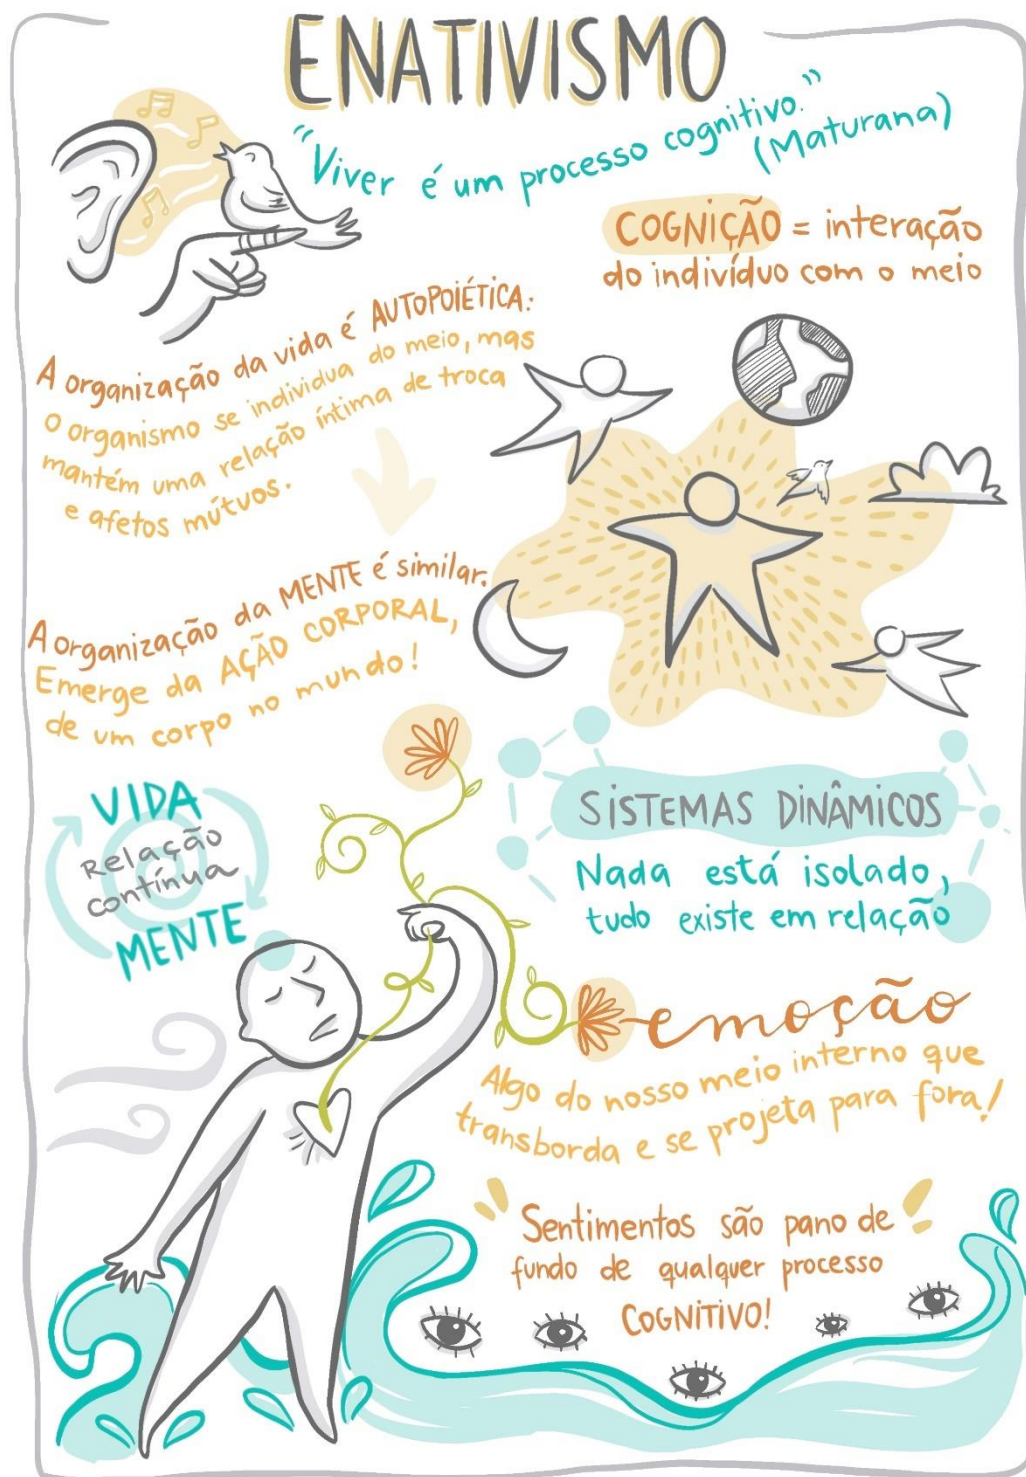 ENATIVISMO
"Viver é um processo cognitivo."
(Maturana)
COGNIÇÃO = interação
do indivíduo com o meio
A organização da vida é AUTOPOIÉTICA:
O organismo se individua do meio, mas
mantém uma relação íntima de troca
e afetos mútuos.
A organização da MENTE é similar.
Emerge da AÇÃO CORPORAL,
de um corpo no mundo!
VIDA
Relação
contínua
MENTE
SISTEMAS DINÂMICOS
Nada está isolado,
tudo existe em relação
emoção
Algo do nosso meio interno que
transborda e se projeta para fora!
Sentimentos são pano de
fundo de qualquer processo
COGNITIVO!